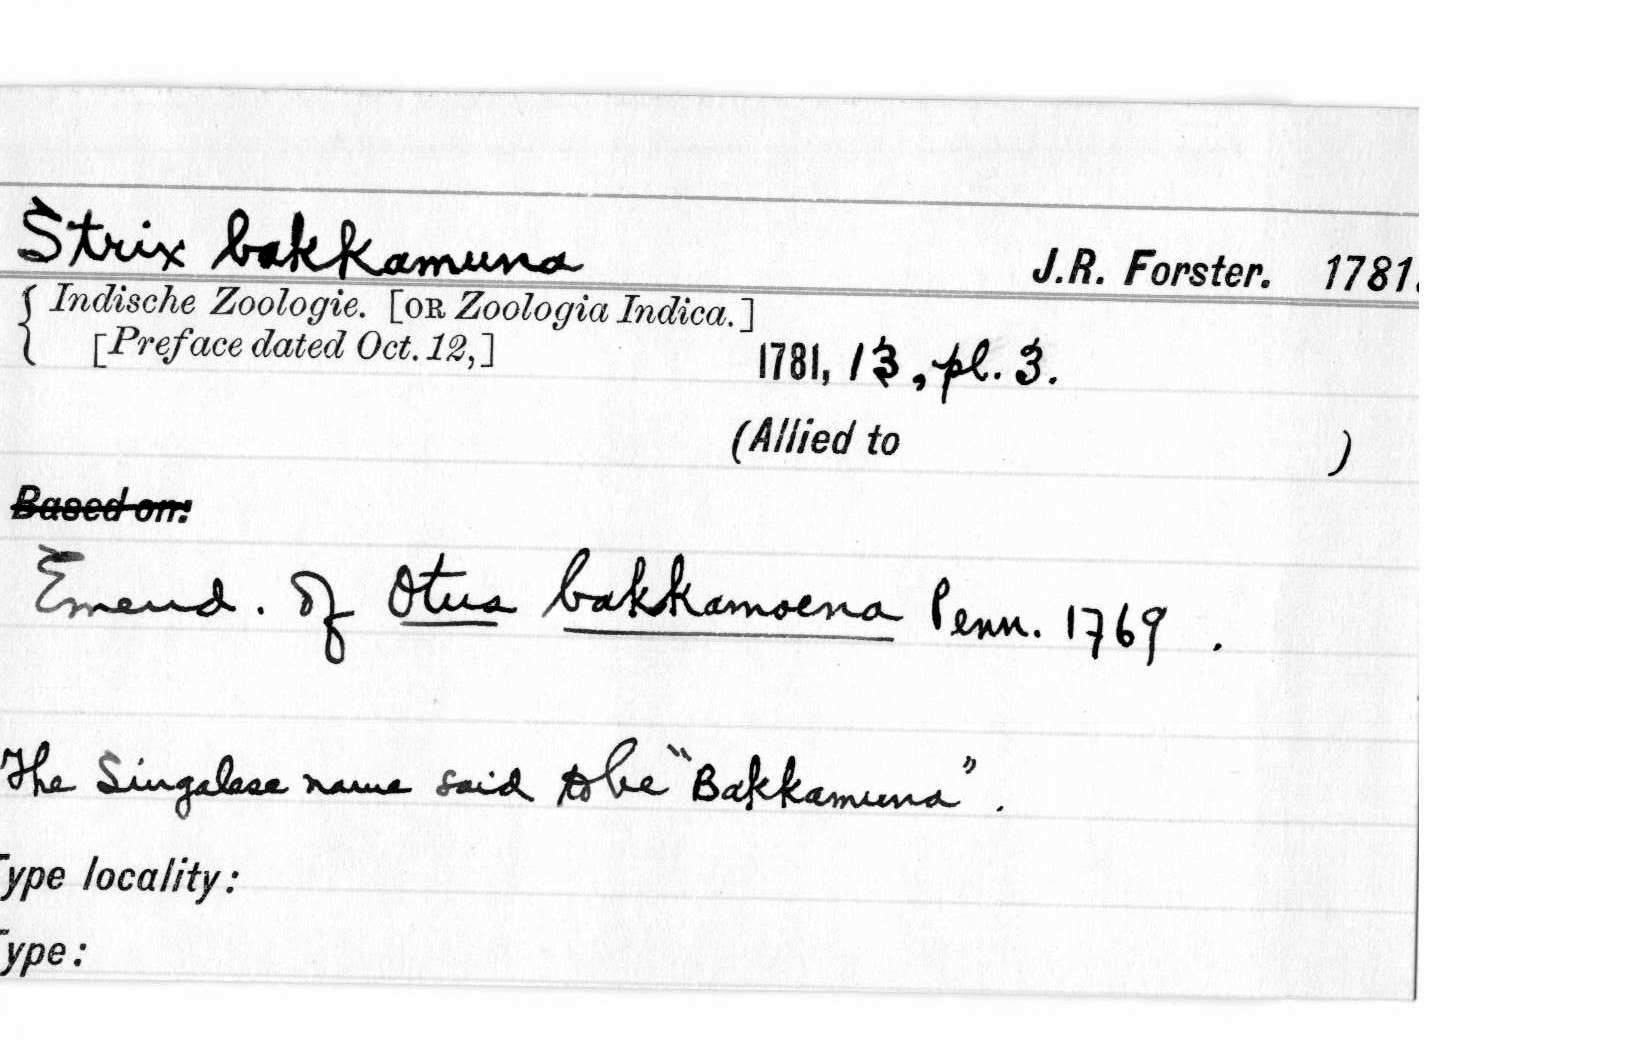 Strix bakkamuna J.R. Forster. 1781.
{ Indische Zoologie. [OR Zoologia Indica.]
[Preface dated Oct. 12,] 1781, 13, pl. 3.
(Allied to )
Based on:
Emend. of Otus bakkamoena Penn. 1769.
The Singalese name said to be "Bakkamuna".
Type locality:
Type: